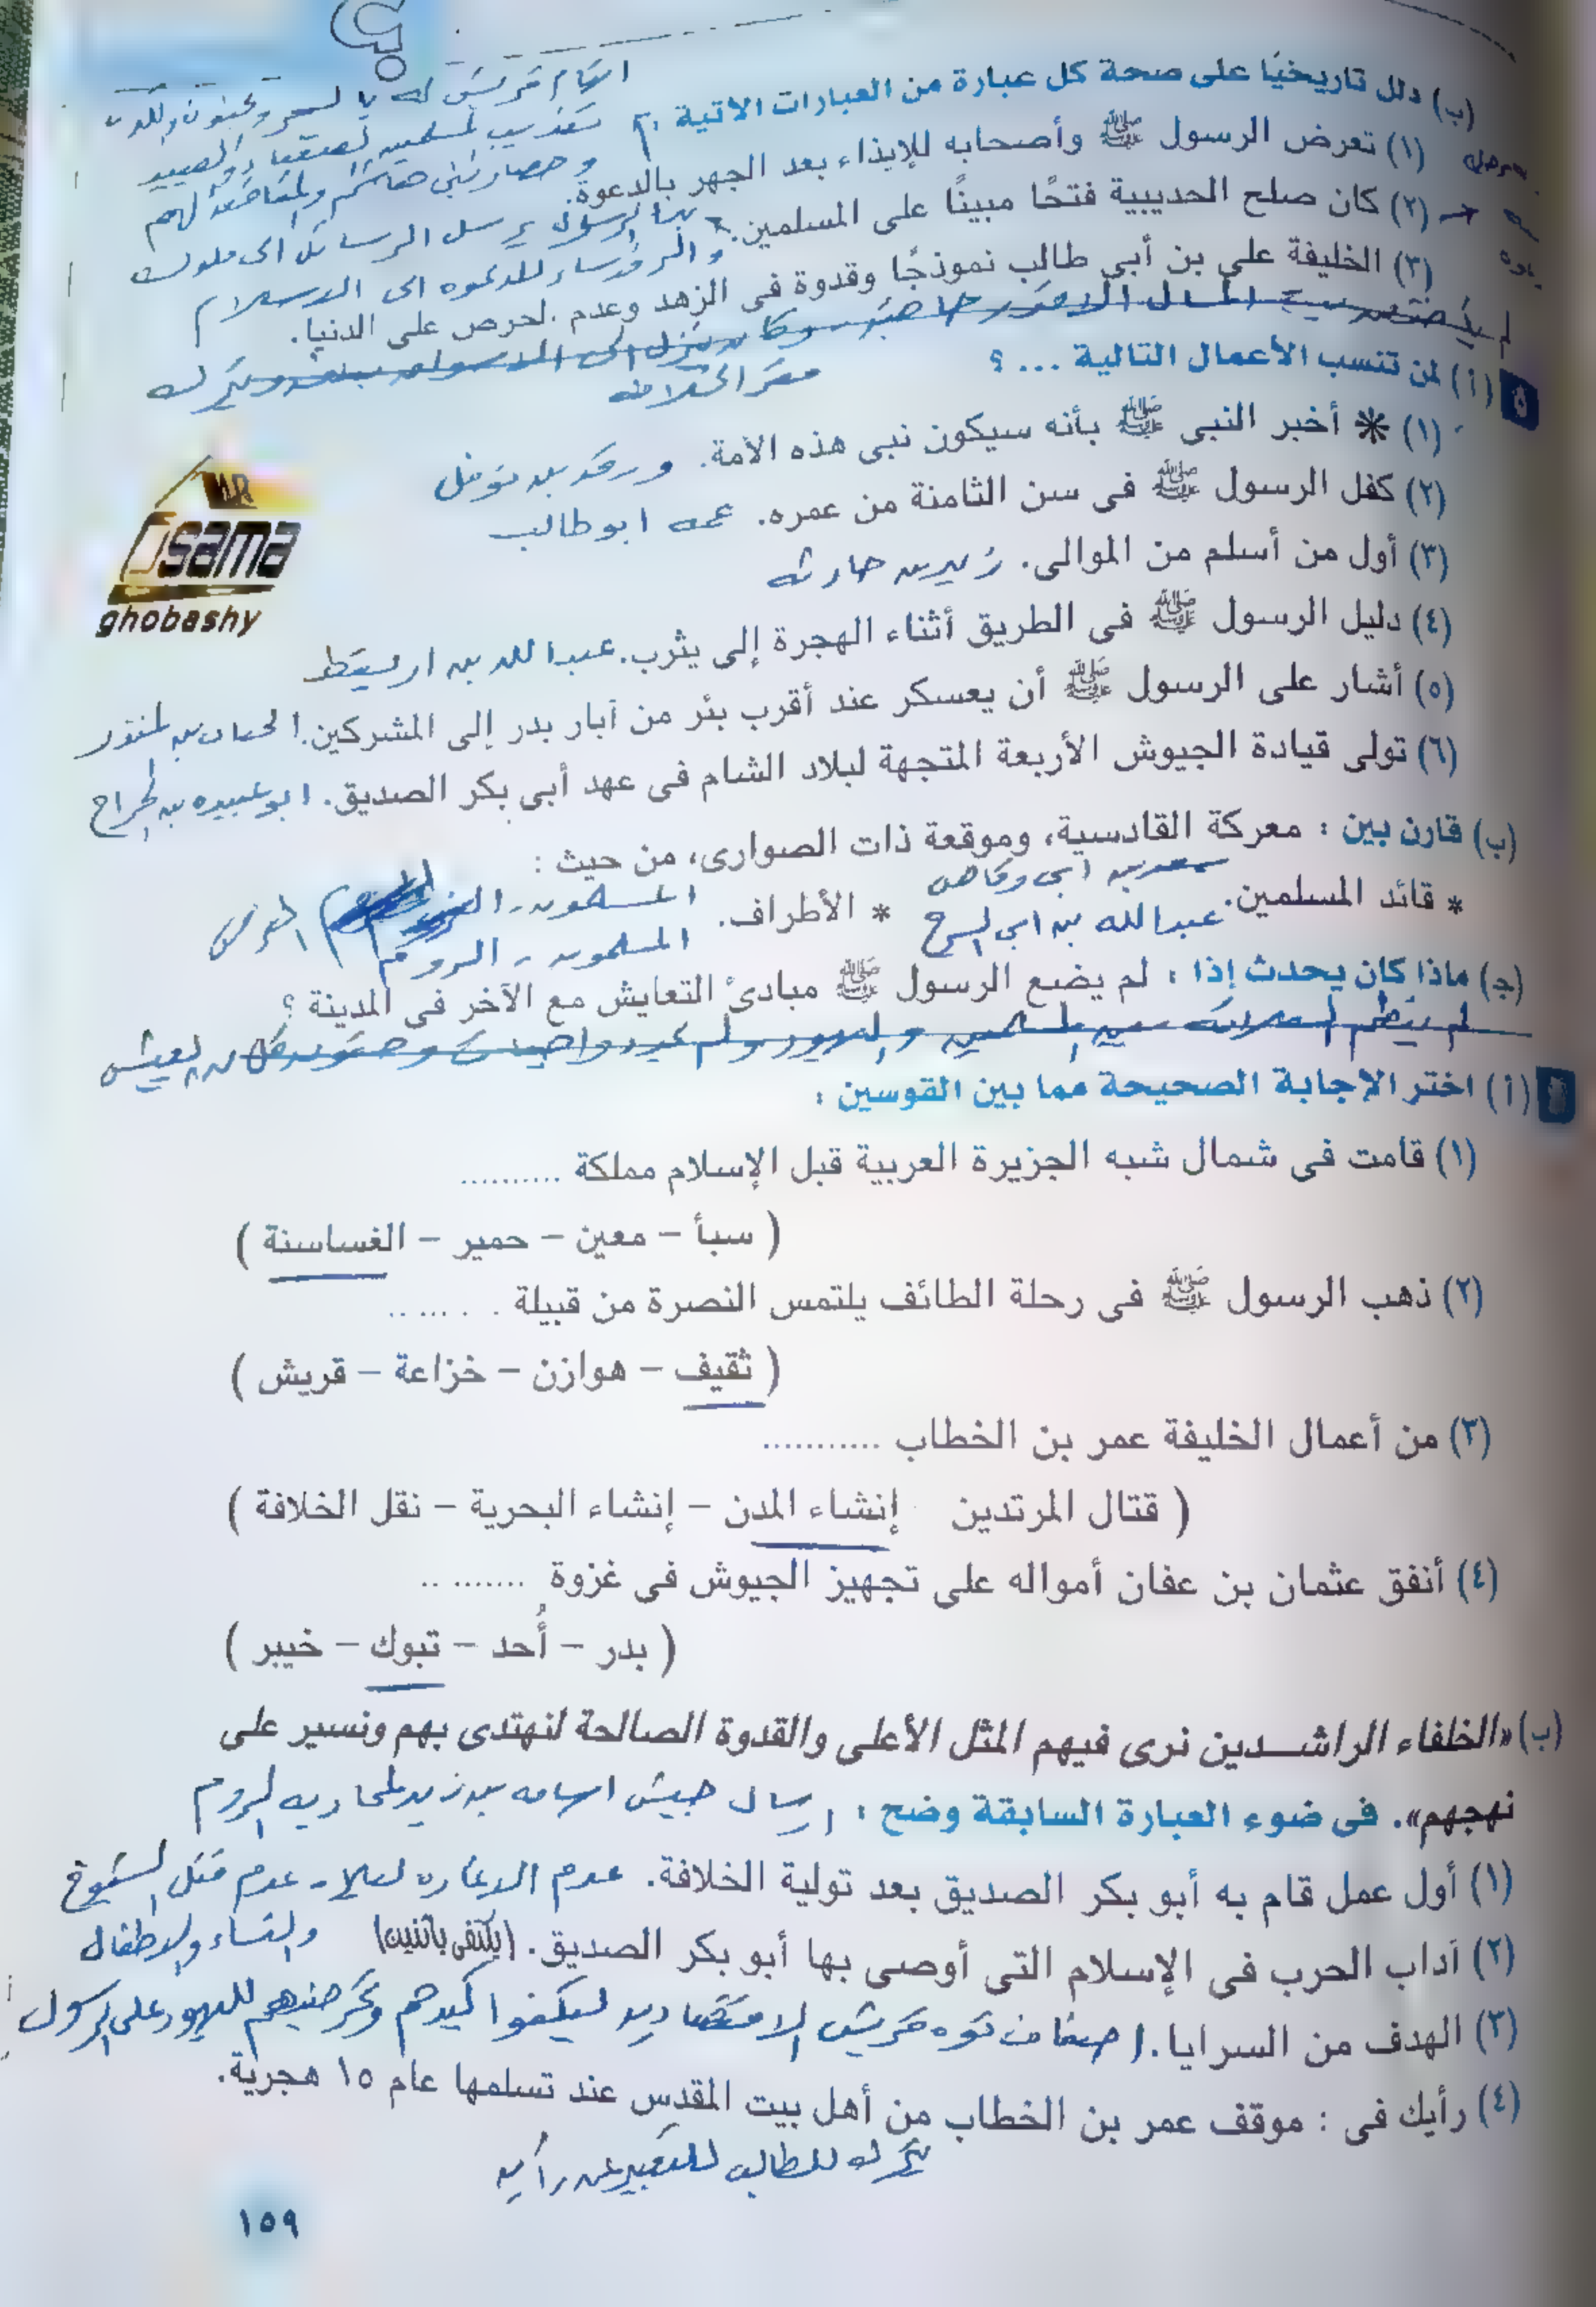 (ب) دلل تاريخيًا على صحة كل عبارة من العبارات الآتية :
(١) تعرض الرسول ﷺ وأصحابه للإيذاء بعد الجهر بالدعوة.
(٢) كان صلح الحديبية فتحًا مبينًا على المسلمين.
بدأ الرسول يرسل الرسائل الى ملوك
والرؤساء للدعوه الى الاسلام
(٣) الخليفة علي بن أبي طالب نموذجًا وقدوة فى الزهد وعدم الحرص على الدنيا.
مقر الخلافه
(أ) لمن تنسب الأعمال التالية ... ؟
(١) * أخبر النبى ﷺ بأنه سيكون نبى هذه الأمة. ورقه بن نوفل
(٢) كفل الرسول ﷺ فى سن الثامنة من عمره. عمه ابو طالب
(٣) أول من أسلم من الموالى. زيد بن حارثه
MR
Osama
ghobashy
(٤) دليل الرسول ﷺ فى الطريق أثناء الهجرة إلى يثرب. عبد الله بن اريقط
(٥) أشار على الرسول ﷺ أن يعسكر عند أقرب بئر من آبار بدر إلى المشركين. الحباب بن المنذر
(٦) تولى قيادة الجيوش الأربعة المتجهة لبلاد الشام فى عهد أبى بكر الصديق. ابو عبيده بن الجراح
(ب) قارن بين : معركة القادسية، وموقعة ذات الصوارى، من حيث :
سعد بن ابى وقاص
* قائد المسلمين. عبدالله بن ابى السرح * الأطراف. المسلمون - الفرس
المسلمون - الروم
(ج) ماذا كان يحدث إذا : لم يضع الرسول ﷺ مبادئ التعايش مع الآخر فى المدينة ؟
(أ) اختر الإجابة الصحيحة مما بين القوسين :
(١) قامت فى شمال شبه الجزيرة العربية قبل الإسلام مملكة ..........
( سبأ – معين – حمير – الغساسنة )
(٢) ذهب الرسول ﷺ فى رحلة الطائف يلتمس النصرة من قبيلة ........
( ثقيف – هوازن – خزاعة – قريش )
(٣) من أعمال الخليفة عمر بن الخطاب ...........
( قتال المرتدين إنشاء المدن – إنشاء البحرية – نقل الخلافة )
(٤) أنفق عثمان بن عفان أمواله على تجهيز الجيوش فى غزوة .........
( بدر – أُحد – تبوك – خيبر )
(ب) «الخلفاء الراشدين نرى فيهم المثل الأعلى والقدوة الصالحة لنهتدى بهم ونسير على
نهجهم». فى ضوء العبارة السابقة وضح : ارسال جيش اسامه بن زيد لمحاربه الروم
(١) أول عمل قام به أبو بكر الصديق بعد تولية الخلافة. عدم قتل الشيوخ
(٢) آداب الحرب فى الإسلام التى أوصى بها أبو بكر الصديق. (يكتفى باثنين) والنساء والاطفال
(٣) الهدف من السرايا. اضعاف قوه قريش الاقتصاديه ليكفوا كيدهم وتحريضهم لليهود على الرسول
(٤) رأيك فى : موقف عمر بن الخطاب من أهل بيت المقدس عند تسلمها عام ١٥ هجرية.
يترك للطالب للتعبير عن رأيه
١٥٩